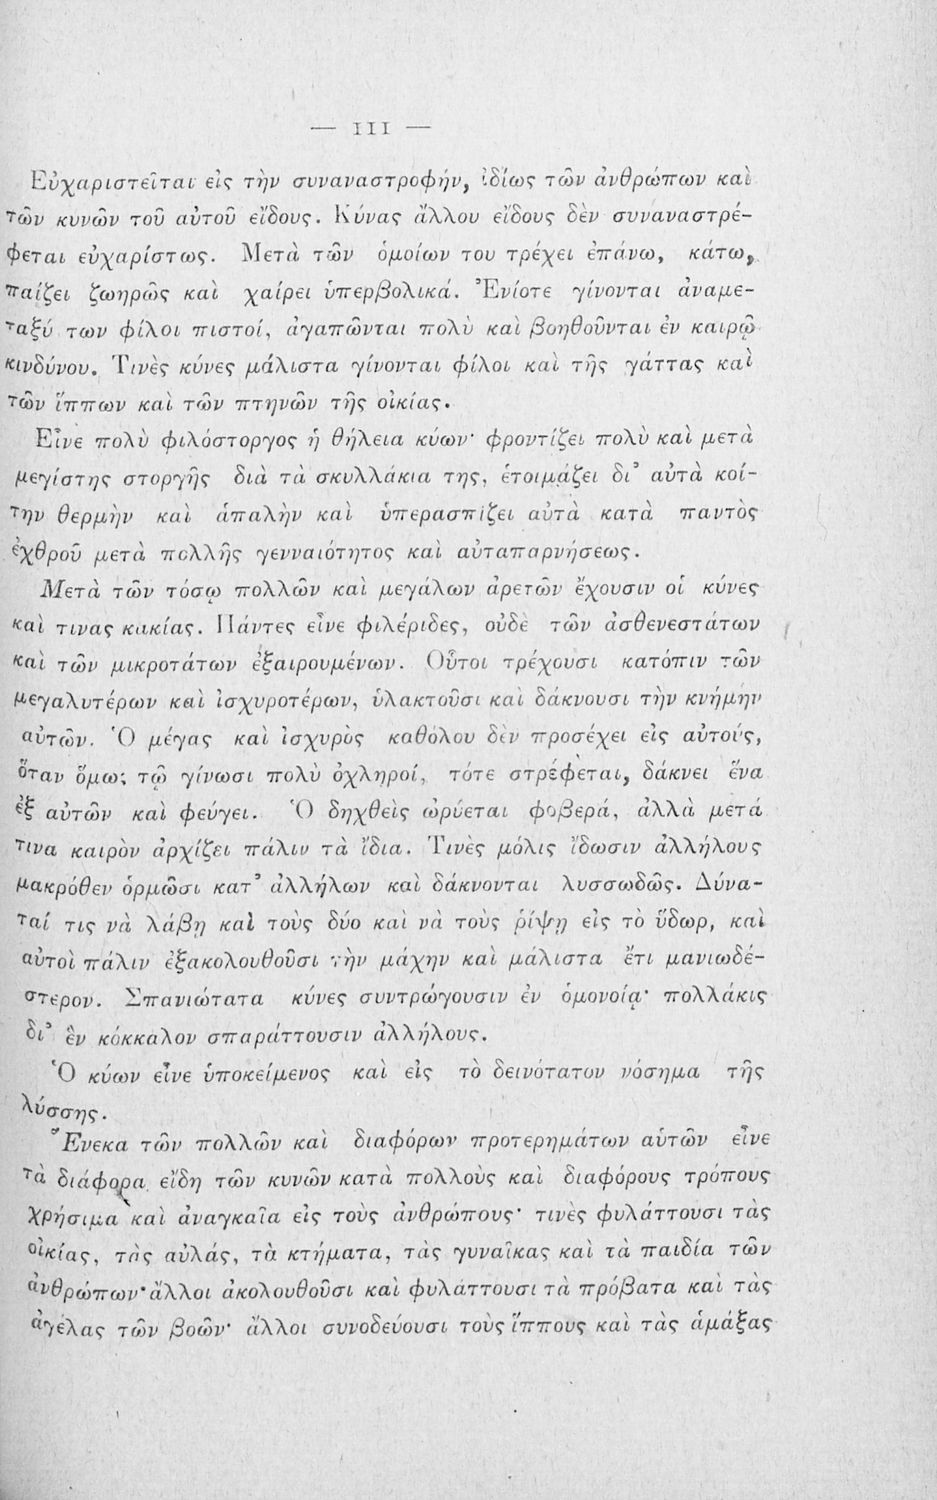 — III —
Εὐχαριστεῖται εἰς τὴν συναναστροφήν, ἰδίως τῶν ἀνθρώπων καὶ
τῶν κυνῶν τοῦ αὐτοῦ εἴδους. Κύνας ἄλλου εἴδους δὲν συναναστρέ-
φεται εὐχαρίστως. Μετὰ τῶν ὁμοίων του τρέχει ἐπάνω, κάτω,
παίζει ζωηρῶς καὶ χαίρει ὑπερβολικά. Ἐνίοτε γίνονται ἀναμε-
ταξύ των φίλοι πιστοί, ἀγαπῶνται πολὺ καὶ βοηθοῦνται ἐν καιρῷ
κινδύνου. Τινὲς κύνες μάλιστα γίνονται φίλοι καὶ τῆς γάττας καὶ
τῶν ἵππων καὶ τῶν πτηνῶν τῆς οἰκίας.
Εἶνε πολὺ φιλόστοργος ἡ θήλεια κύων· φροντίζει πολὺ καὶ μετὰ
μεγίστης στοργῆς διὰ τὰ σκυλλάκια της, ἑτοιμάζει δι' αὐτὰ κοί-
την θερμὴν καὶ ἁπαλὴν καὶ ὑπερασπίζει αὐτὰ κατὰ παντὸς
ἐχθροῦ μετὰ πολλῆς γενναιότητος καὶ αὐταπαρνήσεως.
Μετὰ τῶν τόσῳ πολλῶν καὶ μεγάλων ἀρετῶν ἔχουσιν οἱ κύνες
καὶ τινας κακίας. Πάντες εἶνε φιλέριδες, οὐδὲ τῶν ἀσθενεστάτων
καὶ τῶν μικροτάτων ἐξαιρουμένων. Οὗτοι τρέχουσι κατόπιν τῶν
μεγαλυτέρων καὶ ἰσχυροτέρων, ὑλακτοῦσι καὶ δάκνουσι τὴν κνήμην
αὐτῶν. Ὁ μέγας καὶ ἰσχυρὸς καθόλου δὲν προσέχει εἰς αὐτούς,
ὅταν ὅμως τῷ γίνωσι πολὺ ὀχληροί, τότε στρέφεται, δάκνει ἕνα
ἐξ αὐτῶν καὶ φεύγει. Ὁ δηχθεὶς ὠρύεται φοβερά, ἀλλὰ μετά
τινα καιρὸν ἀρχίζει πάλιν τὰ ἴδια. Τινὲς μόλις ἴδωσιν ἀλλήλους
μακρόθεν ὁρμῶσι κατ' ἀλλήλων καὶ δάκνονται λυσσωδῶς. Δύνα-
ταί τις νὰ λάβῃ καὶ τοὺς δύο καὶ νὰ τοὺς ῥίψῃ εἰς τὸ ὕδωρ, καὶ
αὐτοὶ πάλιν ἐξακολουθοῦσι τὴν μάχην καὶ μάλιστα ἔτι μανιωδέ-
στερον. Σπανιώτατα κύνες συντρώγουσιν ἐν ὁμονοίᾳ· πολλάκις
δι' ἓν κόκκαλον σπαράττουσιν ἀλλήλους.
Ὁ κύων εἶνε ὑποκείμενος καὶ εἰς τὸ δεινότατον νόσημα τῆς
λύσσης.
Ἕνεκα τῶν πολλῶν καὶ διαφόρων προτερημάτων αὑτῶν εἶνε
τὰ διάφορα εἴδη τῶν κυνῶν κατὰ πολλοὺς καὶ διαφόρους τρόπους
χρήσιμα καὶ ἀναγκαῖα εἰς τοὺς ἀνθρώπους· τινὲς φυλάττουσι τὰς
οἰκίας, τὰς αὐλάς, τὰ κτήματα, τὰς γυναῖκας καὶ τὰ παιδία τῶν
ἀνθρώπων· ἄλλοι ἀκολουθοῦσι καὶ φυλάττουσι τὰ πρόβατα καὶ τὰς
ἀγέλας τῶν βοῶν· ἄλλοι συνοδεύουσι τοὺς ἵππους καὶ τὰς ἁμάξας